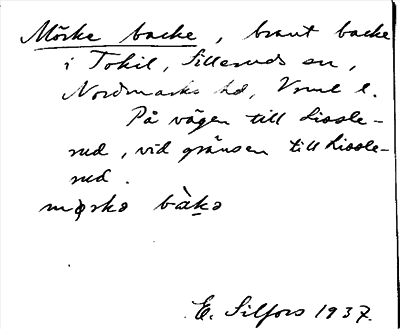 Mörke backe, brant backe
i Tokil, Silleruds sn,
Nordmarks hd, Vrml l.
På vägen till Lissle-
rud, vid gränsen till Lissle-
rud.
mørkə bàkə
E. Silfors 1937.